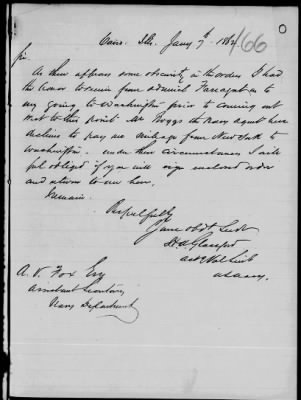 Cairo. Ills. Jany 7th 1862
166
Sir
As there appears some obscurity in the orders I had
the honor to receive from Admiral Farragut as to
my going to Washington prior to coming out
West to this point. Mr Boggs the Navy agent here
declines to pay me mileage from New York to
Washington. Under these circumstances I will
feel obliged if you will sign enclosed order
and return to me here,
I remain
Respectfully
Your obdt Servt
A. V. Fox Esq
Assistant Secretary
Navy Department